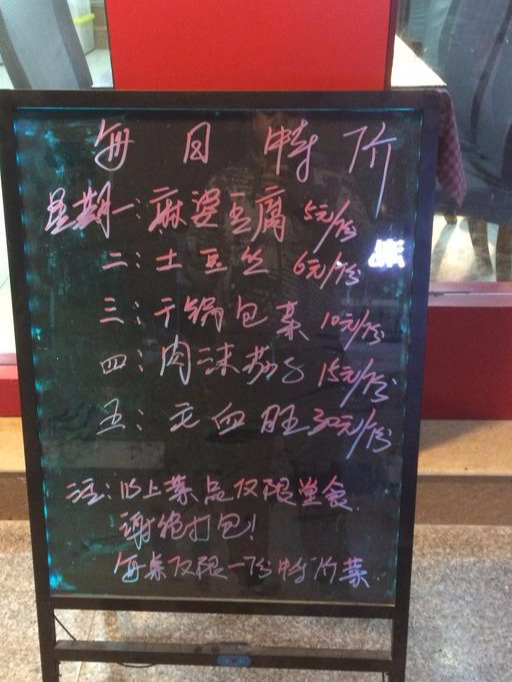 每日特价
星期一:麻婆豆腐 5元/份
二:土豆丝 6元/份
三:干锅包菜 10元/份
四:肉沫茄子 15元/份
五:毛血旺 30元/份
注:以上菜品仅限堂食
谢绝打包!
每桌仅限一份特价菜